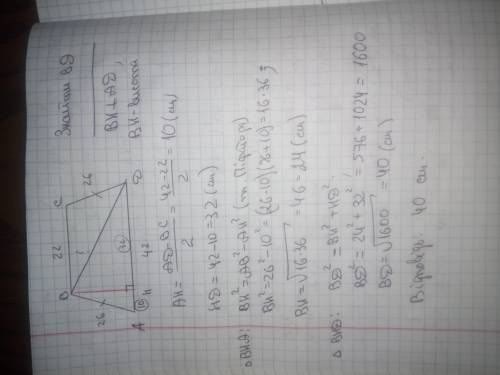 Знайти BD
BH⊥AD;
BH-висота
B 22 C
26 ? 26
A 10 H 42 32 D
AH = (AD-BC)/2 = (42-22)/2 = 10 (см)
HD = 42-10 = 32 (см)
△BHA: BH² = AB²-AH² (т. Піфагора)
BH² = 26²-10² = (26-10)(26+10) = 16·36;
BH = √16·36 = 4·6 = 24 (см)
△ BHD: BD² = BH² + HD²
BD² = 24² + 32² = 576 + 1024 = 1600
BD = √1600 = 40 (см)
Відповідь: 40 см.